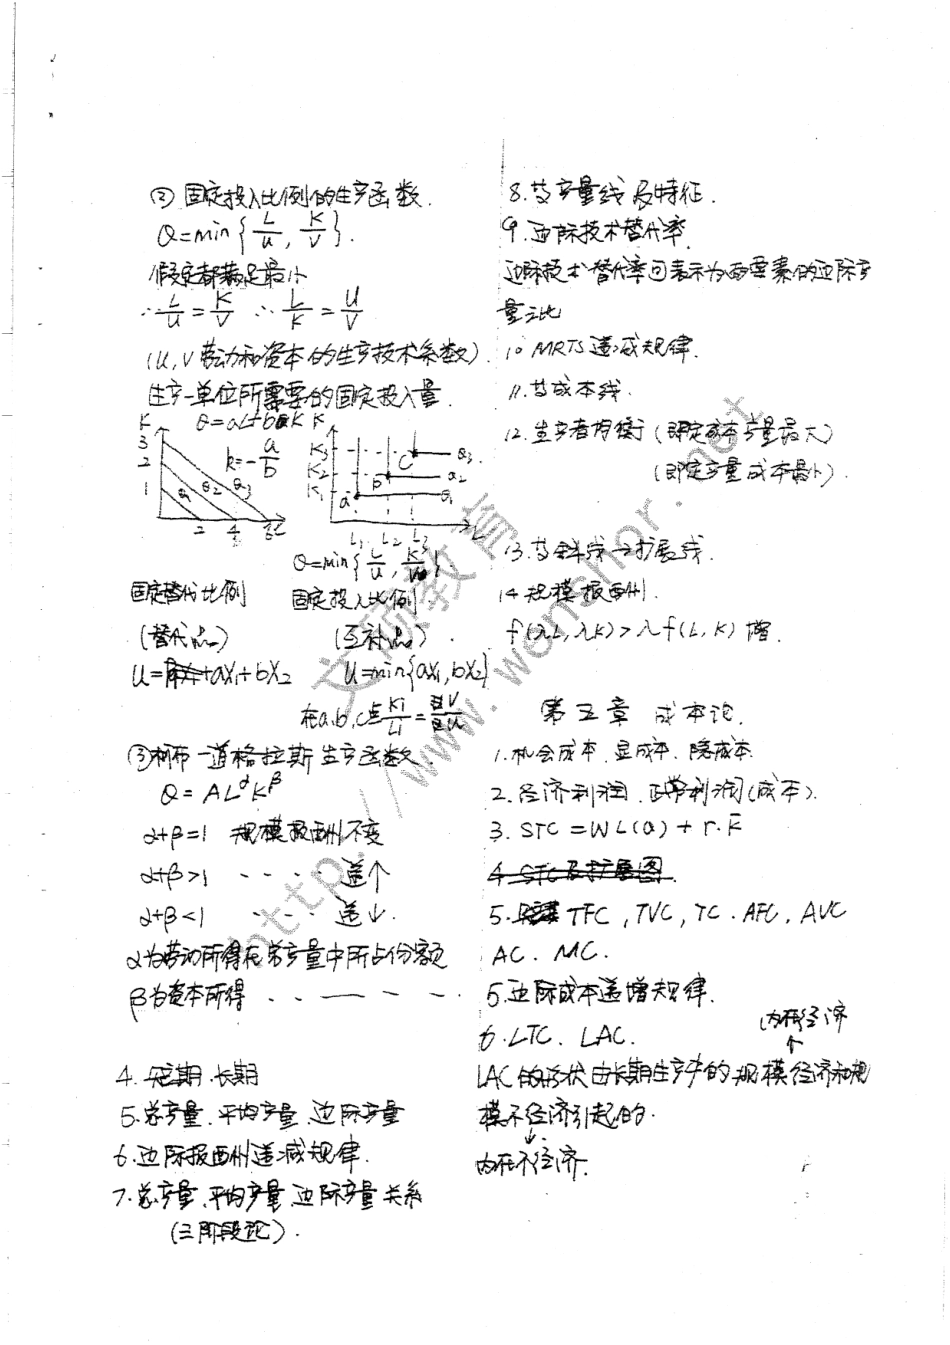 ② 固定投入比例的生产函数.
Q=min{L/u, K/V}.
假设都满足最小
∴ L/u = K/V ∴ L/K = U/V
(U,V 劳动和资本的生产技术系数)
生产一单位所需要的固定投入量.
Q=aL+bK
K
3
2
1
k=-a/b
Q1 Q2 Q3
2 4 6 L
K
K3
K2
K1
a B C
Q3
Q2
Q1
L1 L2 L3 L
Q=min{L/u, K/V}.
固定替代比例 固定投入比例
(替代品) (互补品).
U=aX1+bX2 U=min{aX1,bX2}
在a.b.c点 Ki/Li = V/U
③柯布-道格拉斯生产函数.
Q=AL^αK^β
α+β=1 规模报酬不变
α+β>1 ---- 递↑
α+β<1 ---- 递↓.
α为劳动所得在总产量中所占份额
β为资本所得 - - — - -.
4. 短期.长期
5.总产量.平均产量.边际产量
6.边际报酬递减规律.
7.总产量.平均产量.边际产量关系
(三阶段论).
8.等产量线及特征.
9.边际技术替代率.
边际技术替代率可表示为两要素的边际产
量之比
10 MRTS递减规律.
11.等成本线.
12.生产者均衡(即定成本产量最大)
(即定产量成本最小).
13.等斜线→扩展线.
14 规模报酬.
f(λL,λK)>λf(L,K) 增.
第五章 成本论.
1.机会成本.显成本.隐成本.
2.经济利润.正常利润(成本).
3. STC=WL(Q)+r.K̄
4 STC及扩展图.
5. TFC,TVC,TC.AFC,AVC
AC. MC.
5.边际成本递增规律.
6.LTC. LAC.
内在经济
↑
LAC的形状由长期生产中的规模经济和规
模不经济引起的.
↓
内在不经济.
文硕教育
http://www.wenshor.net